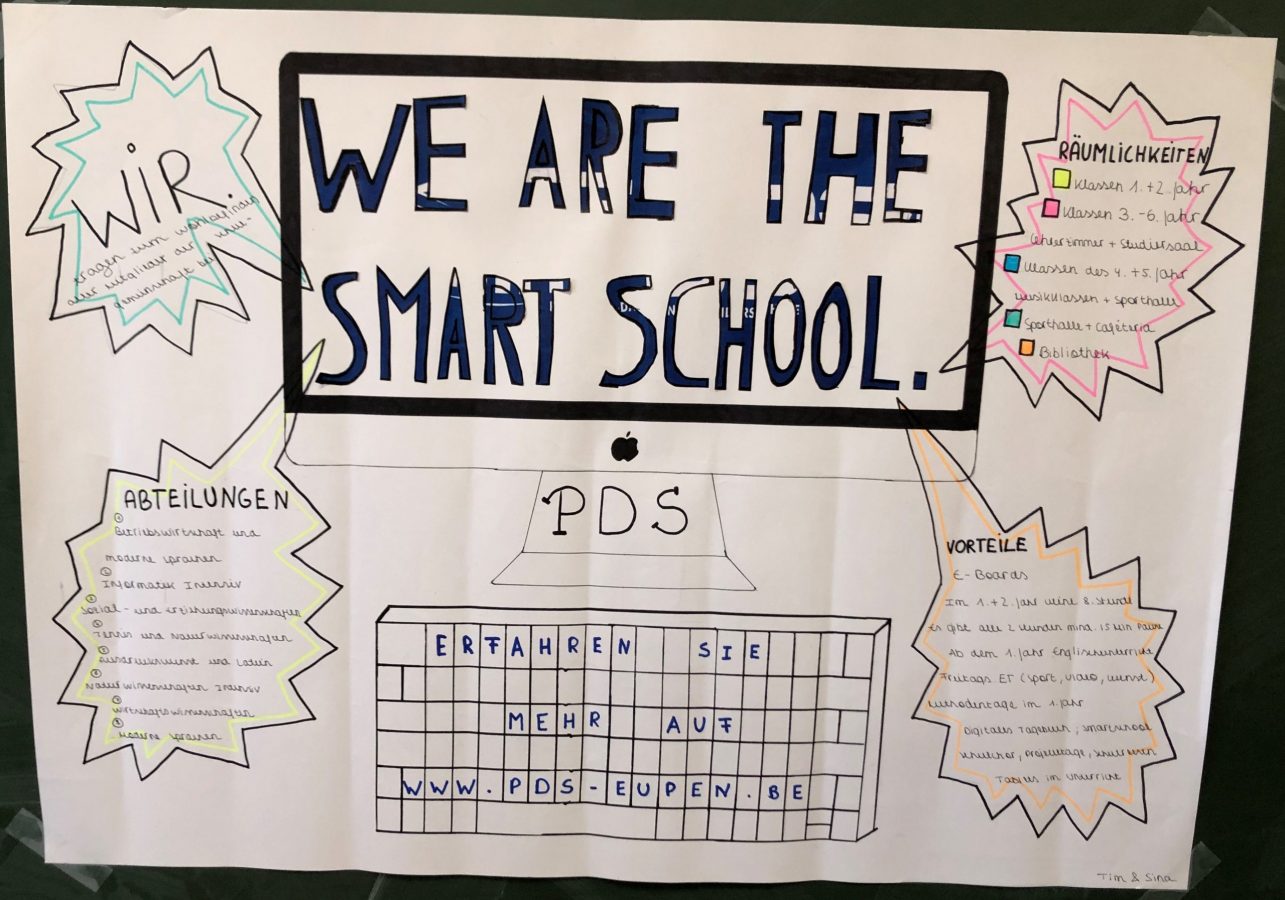 WE ARE THE
SMART SCHOOL.
PDS
WIR
tragen zum Wohlbefinden
aller Mitglieder der Schul-
gemeinschaft bei
RÄUMLICHKEITEN
Klassen 1. + 2. Jahr
Klassen 3. - 6. Jahr
Lehrerzimmer + Studiersaal
Klassen des 4. + 5. Jahr
Musikklassen + Sporthalle
Sporthalle + Cafétaria
Bibliothek
ABTEILUNGEN
Betriebswirtschaft und
moderne Sprachen
Informatik Intensiv
Sozial- und Erziehungswissenschaften
und Naturwissenschaften
und Latein
Naturwissenschaften Intensiv
Wirtschaftswissenschaften
Moderne Sprachen
VORTEILE
E-Boards
Im 1. + 2. Jahr keine 8. Stunde
Es gibt alle 2 Stunden mind. 15 min Pause
Ab dem 1. Jahr Englischunterricht
Freitags ET (Sport, Video, Kunst)
Methodentage im 1. Jahr
Digitales Tagebuch, smartschool
Schulchor, Projekttage,
Tablets im Unterricht
ERFAHREN SIE
MEHR AUF
WWW.PDS-EUPEN.BE
Tim & Sina